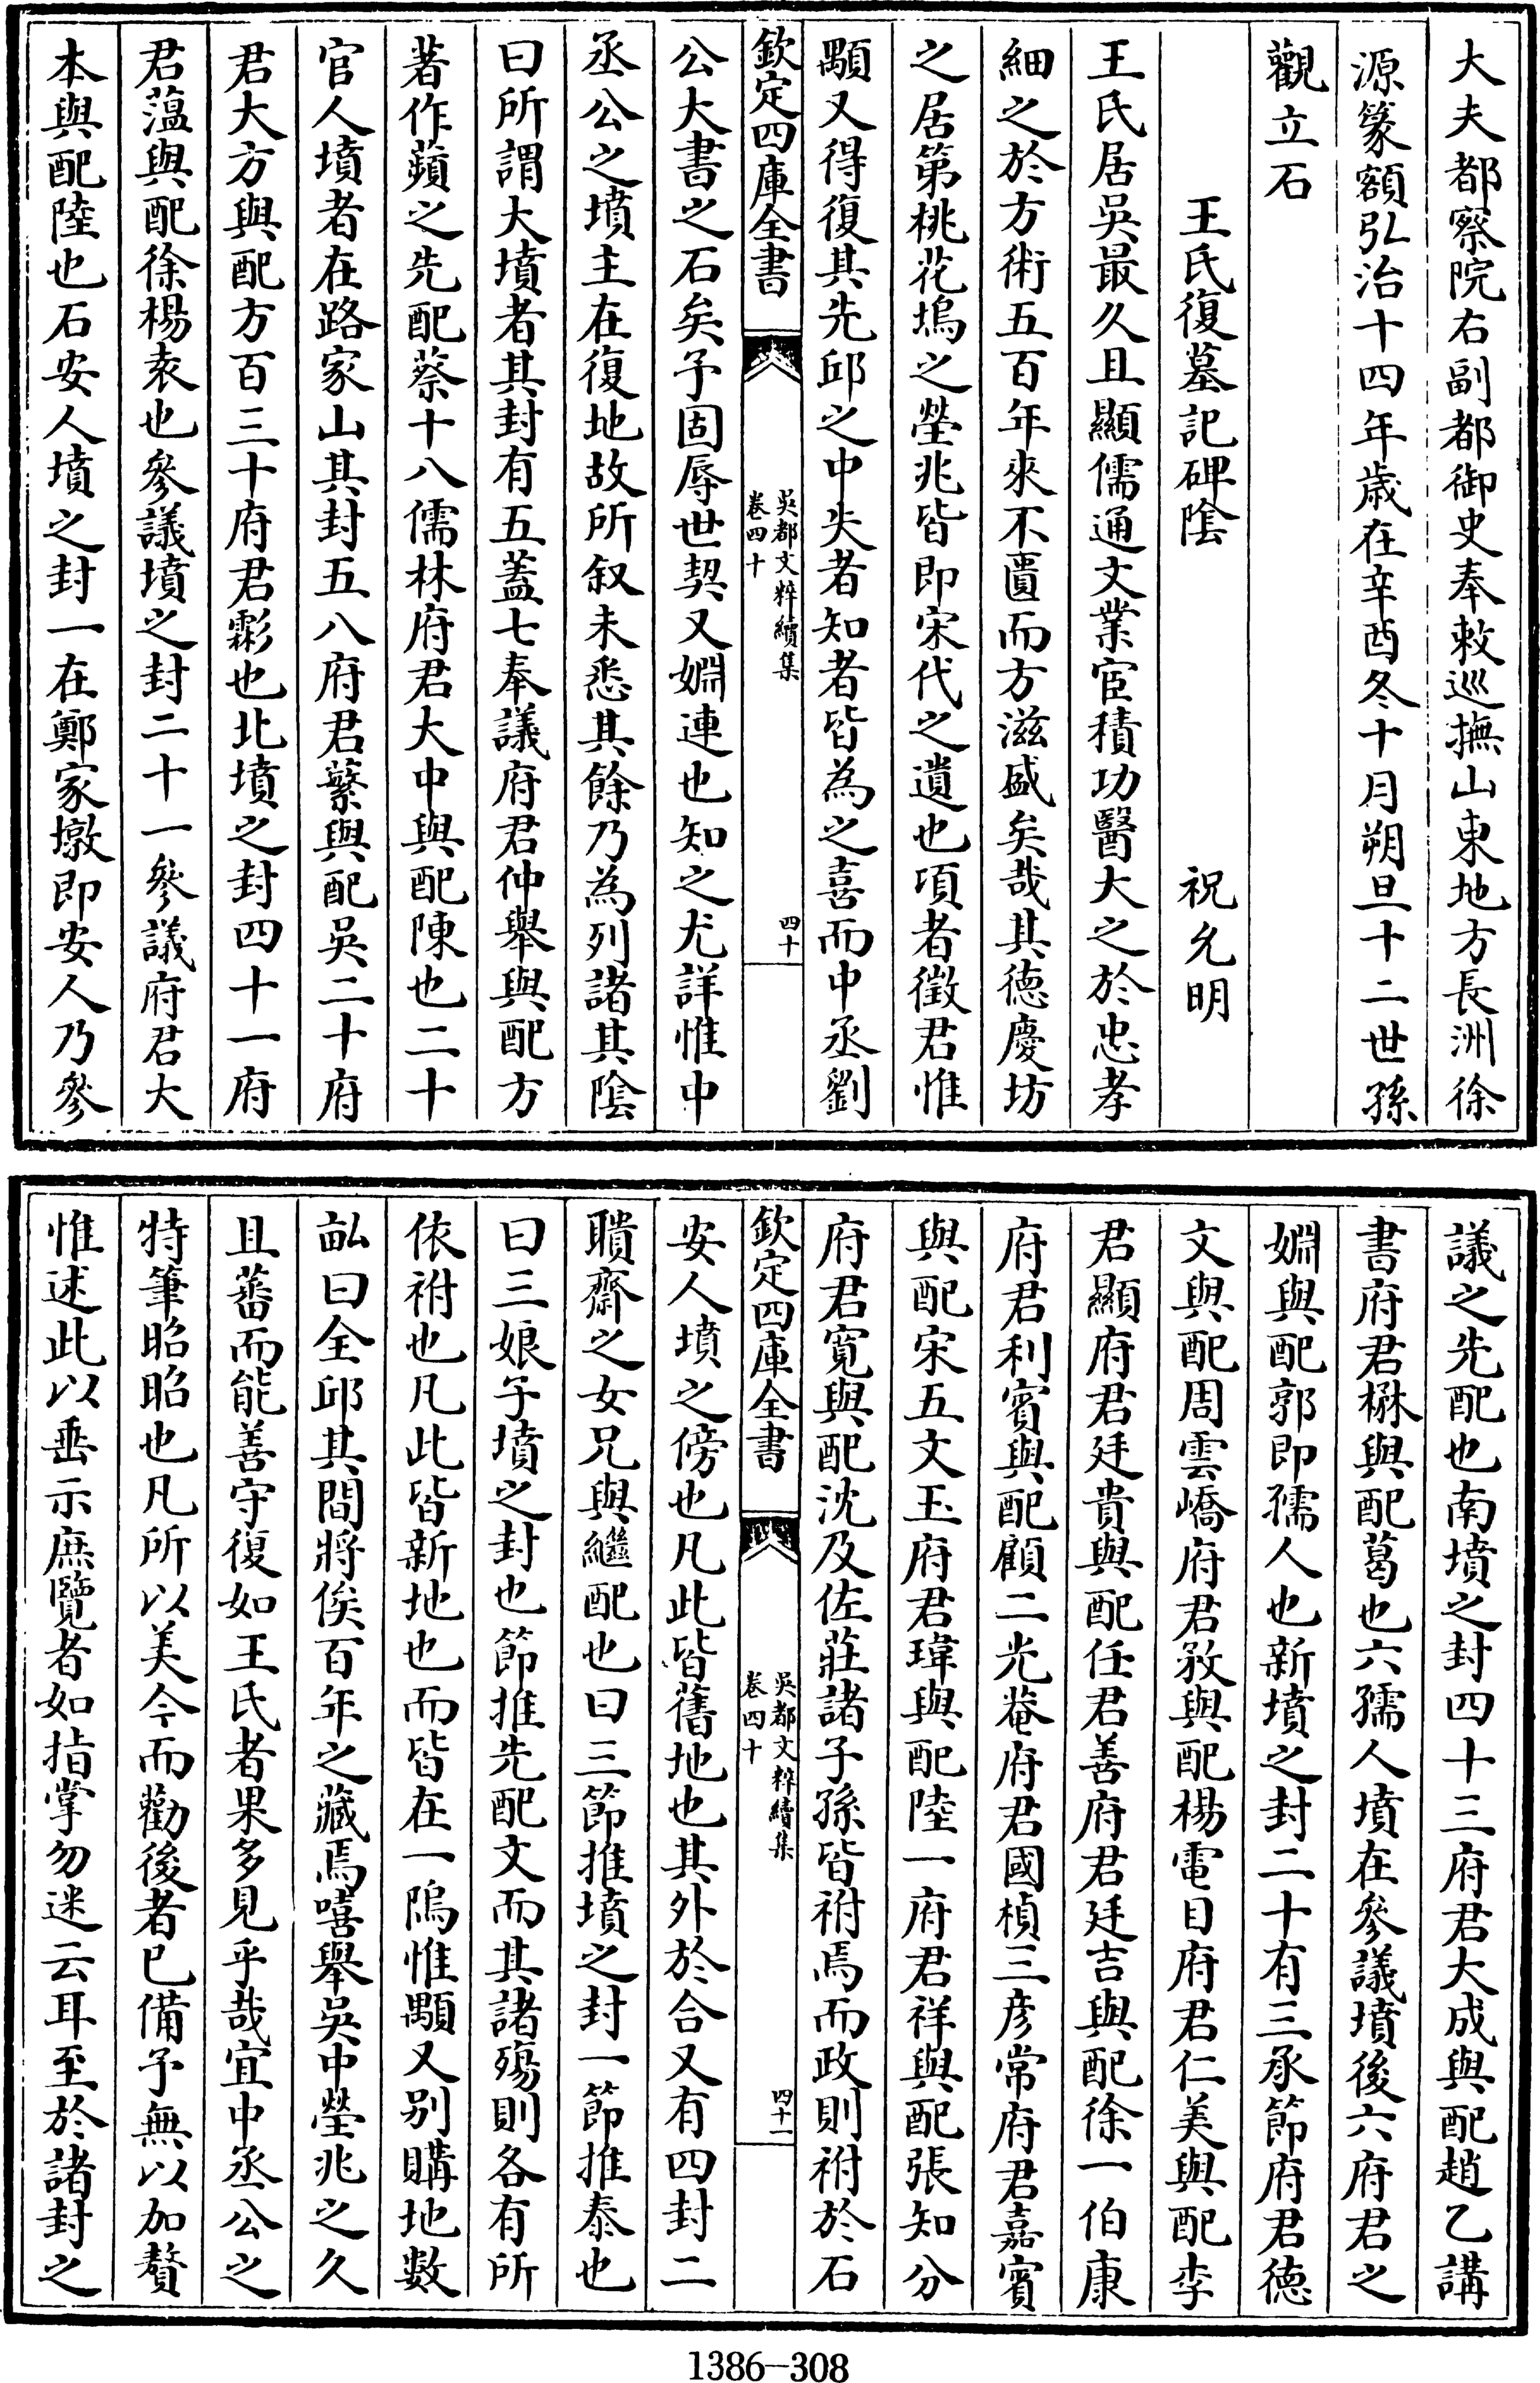 大夫都察院右副都御史奉敕巡撫山東地方長洲徐
源篆額弘治十四年歲在辛酉冬十月朔旦十二世孫
觀立石
王氏復墓記碑陰　祝允明
王氏居吳最久且顯儒通文業宦積功醫大之於忠孝
細之於方術五百年來不匱而方滋盛矣哉其德慶坊
之居第桃花塢之塋兆皆即宋代之遺也項者徵君惟
顒又得復其先邱之中失者知者皆為之喜而中丞劉
欽定四庫全書
吳都文粹續集
卷四十
四十
公大書之石矣予固辱世契又婣連也知之尤詳惟中
丞公之墳主在復地故所叙未悉其餘乃為列諸其陰
曰所謂大墳者其封有五蓋七奉議府君仲舉與配方
著作蘋之先配蔡十八儒林府君大中與配陳也二十
官人墳者在路家山其封五八府君蘩與配吳二十府
君大方與配方百三十府君霦也北墳之封四十一府
君薀與配徐楊袁也參議墳之封二十一參議府君大
本與配陸也石安人墳之封一在鄭家墩即安人乃參
議之先配也南墳之封四十三府君大成與配趙乙講
書府君楙與配葛也六孺人墳在參議墳後六府君之
婣與配郭即孺人也新墳之封二十有三承節府君德
文與配周雲嶠府君敎與配楊電目府君仁美與配李
君顯府君廷貴與配任君善府君廷吉與配徐一伯康
府君利賓與配顧二光菴府君國楨三彥常府君嘉賓
與配宋五文玉府君瑋與配陸一府君祥與配張知分
府君寬與配沈及佐莊諸子孫皆祔焉而政則祔於石
欽定四庫全書
吳都文粹續集
卷四十
四十一
安人墳之傍也凡此皆舊地也其外於合又有四封二
聵齋之女兄與繼配也曰三節推墳之封一節推泰也
曰三娘子墳之封也節推先配文而其諸殤則各有所
依祔也凡此皆新地也而皆在一隖惟顒又別購地數
畝曰全邱其間將俟百年之藏焉嘻舉吳中塋兆之久
且蕃而能善守復如王氏者果多見乎哉宜中丞公之
特筆昭昭也凡所以美今而勸後者已備予無以加贅
惟述此以垂示庶覽者如指掌勿迷云耳至於諸封之
1386-308